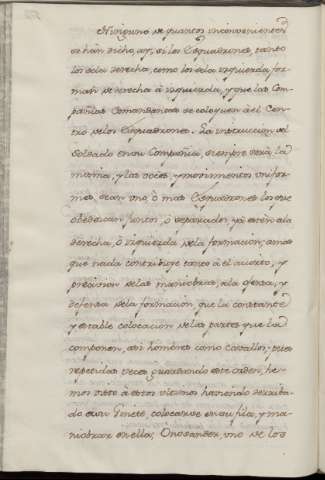 Ninguno de quantos inconvenientes
se han dicho, ay, si los Esquadrones, tanto
los dela derecha, como los dela izquierda, for-
man de derecha à izquierda, y que las Com-
pañias Comandantas se coloquen à el Cen-
tro de los Esquadrones. La instruccion del
Soldado en su Compañia, siempre será la
misma, y las voces, y movimientos unifor-
mes, sean uno, ò mas Esquadrones los que
obedezcan juntos, ò separados, yá estén à la
derecha, ò izquierda dela formacion; amas
que nada contribuye tanto à el acierto, y
precision de las maniobras, ala ofensa, y
defensa dela formacion, que la constante
y estable colocacion de las partes que la
componen, asi hombres como Cavallos; pues
repetidas veces guardando este orden, he-
mos visto à estos ultimos haviendo derriba-
do a su Ginete, colocarse en su fila, y ma-
niobrar en ella; Onosander, uno de los